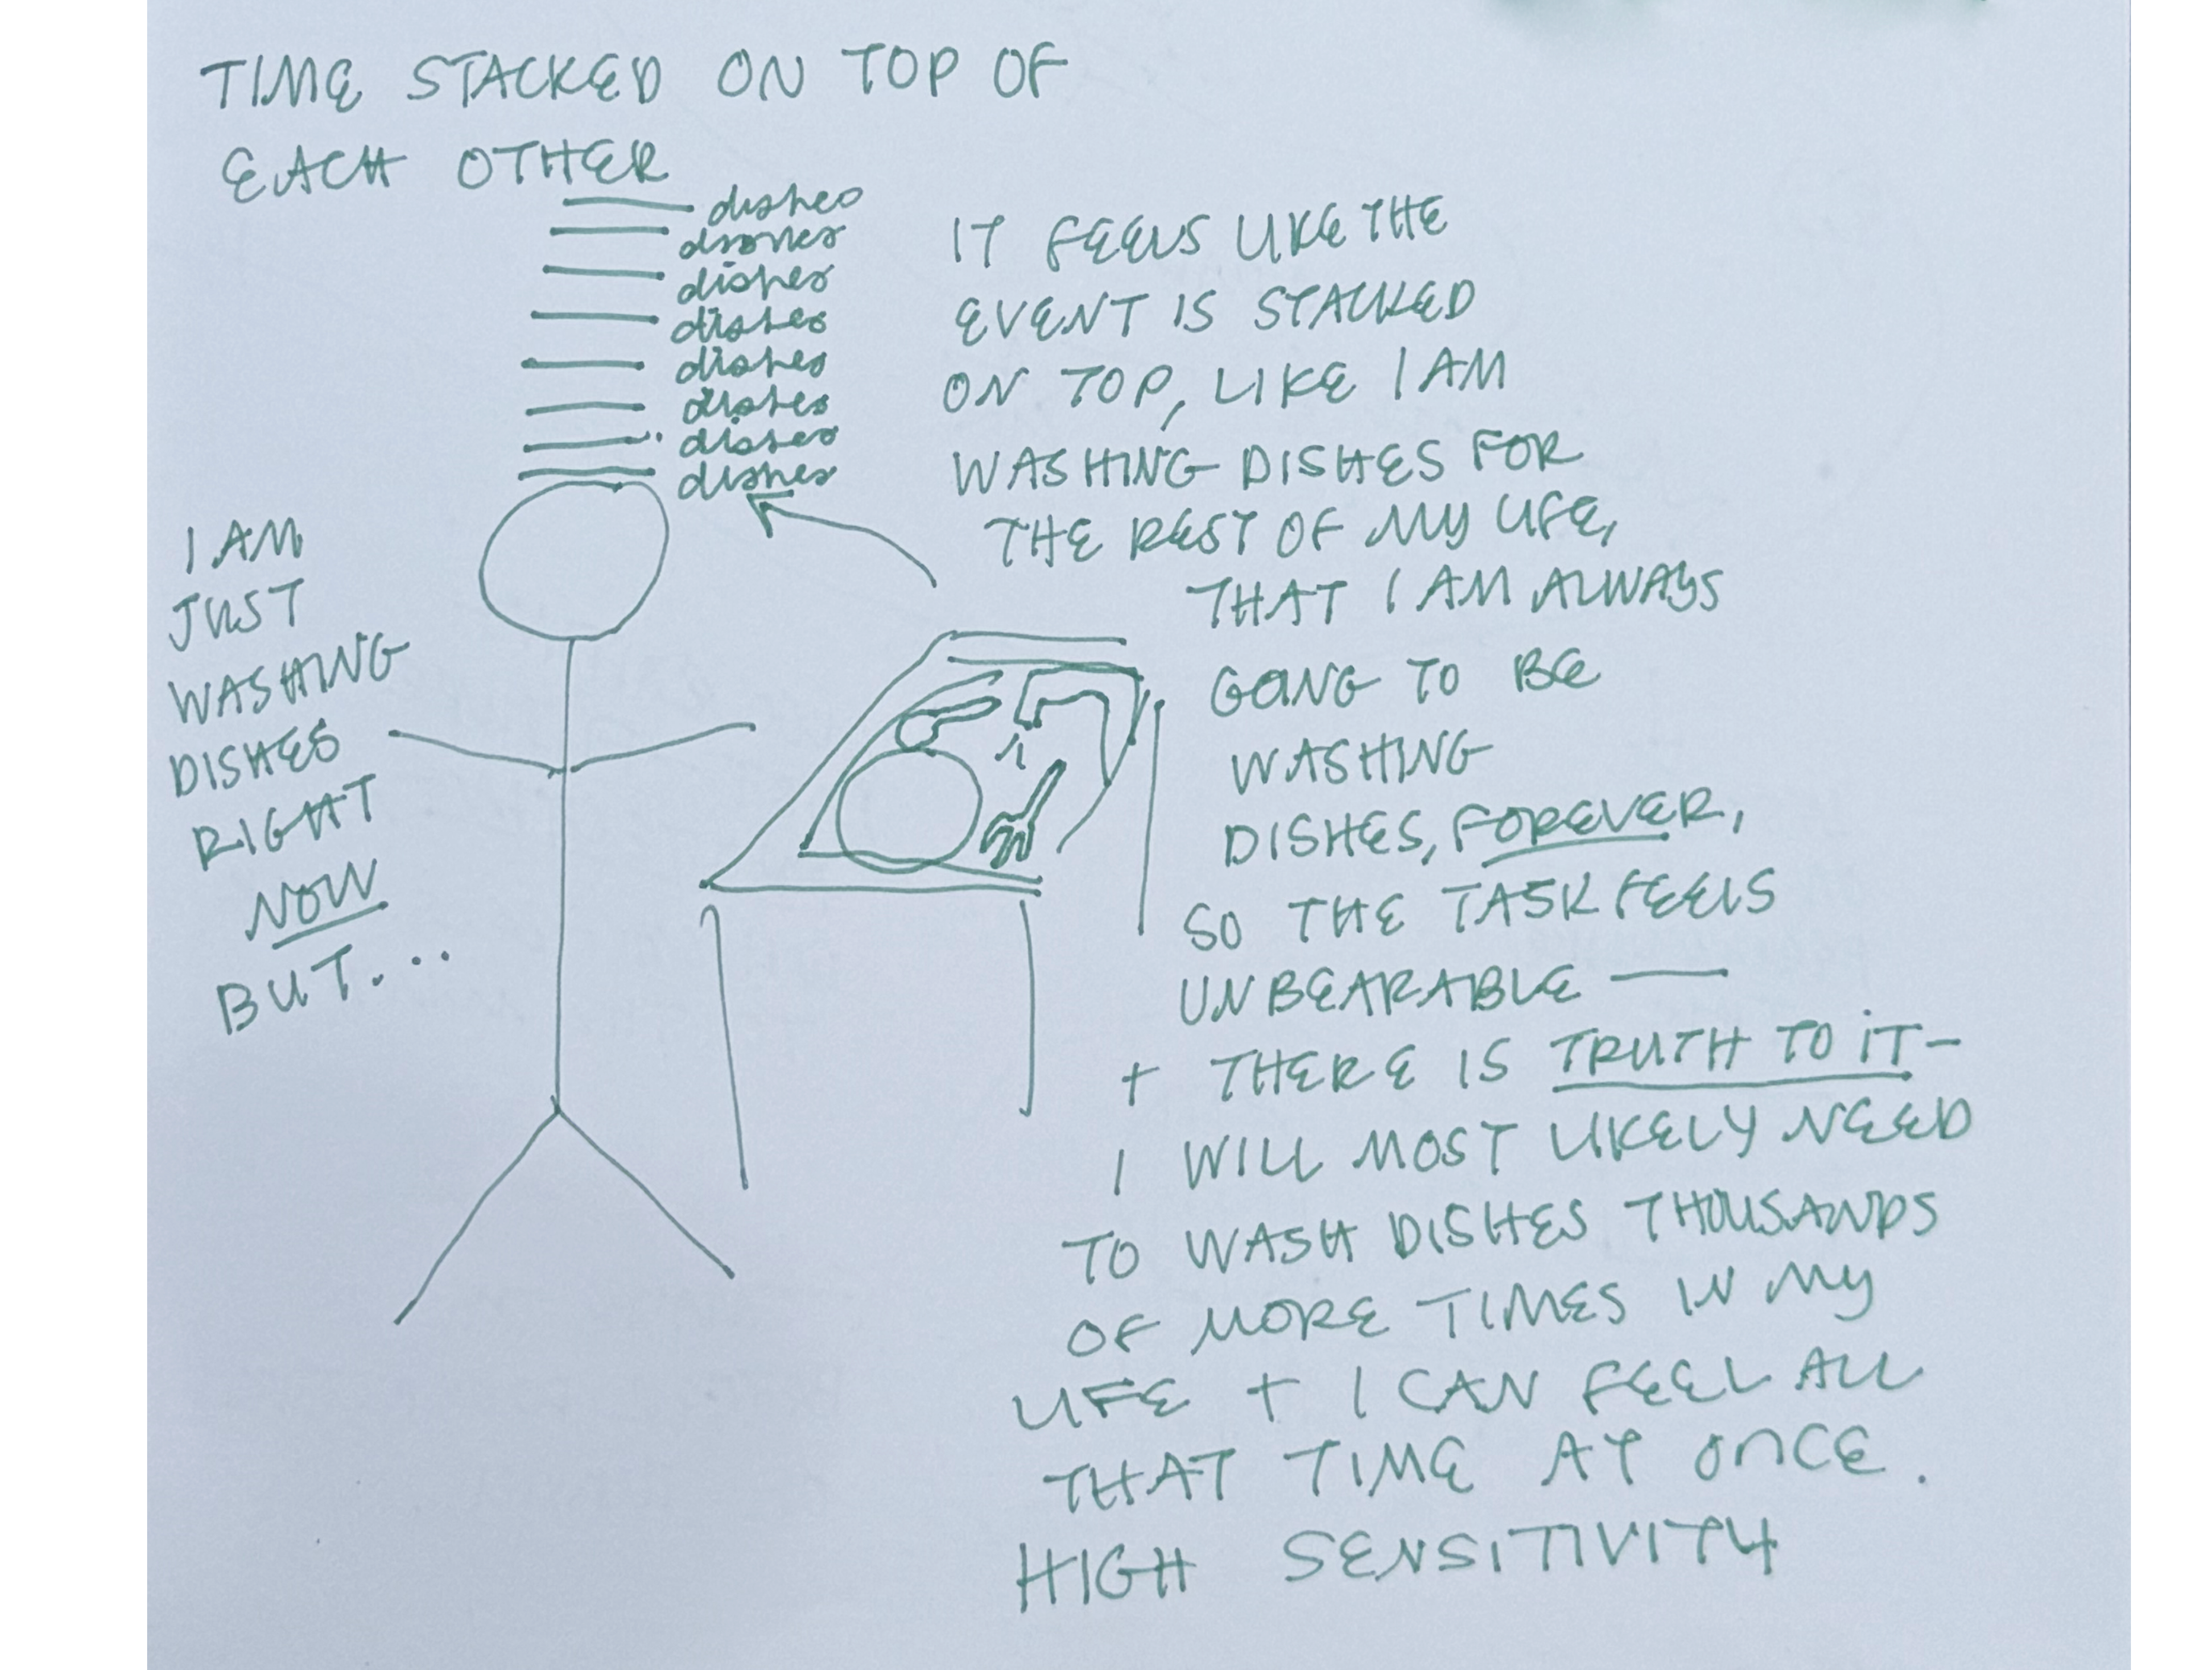 TIME STACKED ON TOP OF
EACH OTHER
dishes
dishes
dishes
dishes
dishes
dishes
dishes
dishes
I AM
JUST
WASHING
DISHES
RIGHT
NOW
BUT...
IT FEELS LIKE THE
EVENT IS STACKED
ON TOP, LIKE I AM
WASHING DISHES FOR
THE REST OF MY LIFE,
THAT I AM ALWAYS
GOING TO BE
WASHING
DISHES, FOREVER,
SO THE TASK FEELS
UNBEARABLE —
+ THERE IS TRUTH TO IT -
I WILL MOST LIKELY NEED
TO WASH DISHES THOUSANDS
OF MORE TIMES IN MY
LIFE + I CAN FEEL ALL
THAT TIME AT ONCE.
HIGH SENSITIVITY